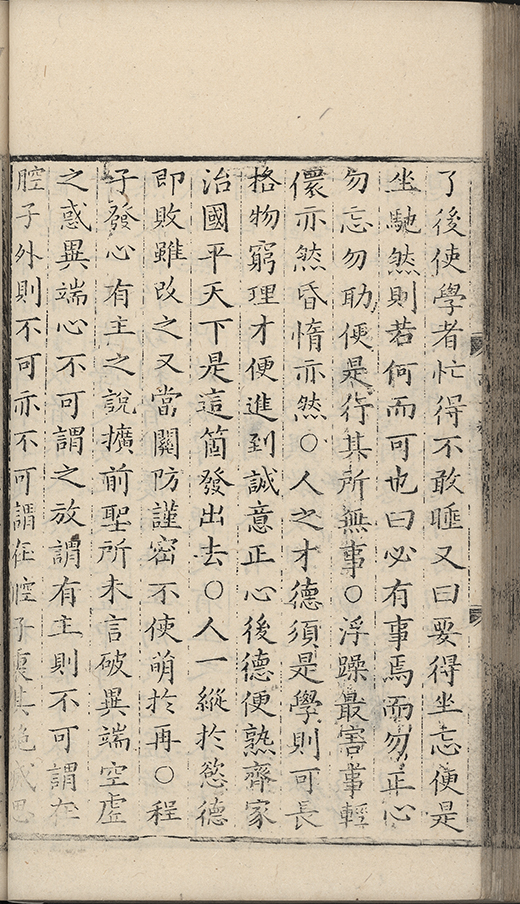 了後使學者忙得不敢睡又曰要得坐忘便是
坐馳然則若何而可也曰必有事焉而勿正心
勿忘勿助便是行其所無事○浮躁最害事輕
儇亦然昏惰亦然○人之才德須是學則可長
格物窮理才便進到誠意正心後德便熟齊家
治國平天下是這箇發出去○人一縱於慾德
即敗雖改之又當關防謹密不使萌於再○程
子發心有主之說擴前聖所未言破異端空虛
之惑異端心不可謂之放謂有主則不可謂在
腔子外則不可亦不可謂在腔子裏其絶滅思